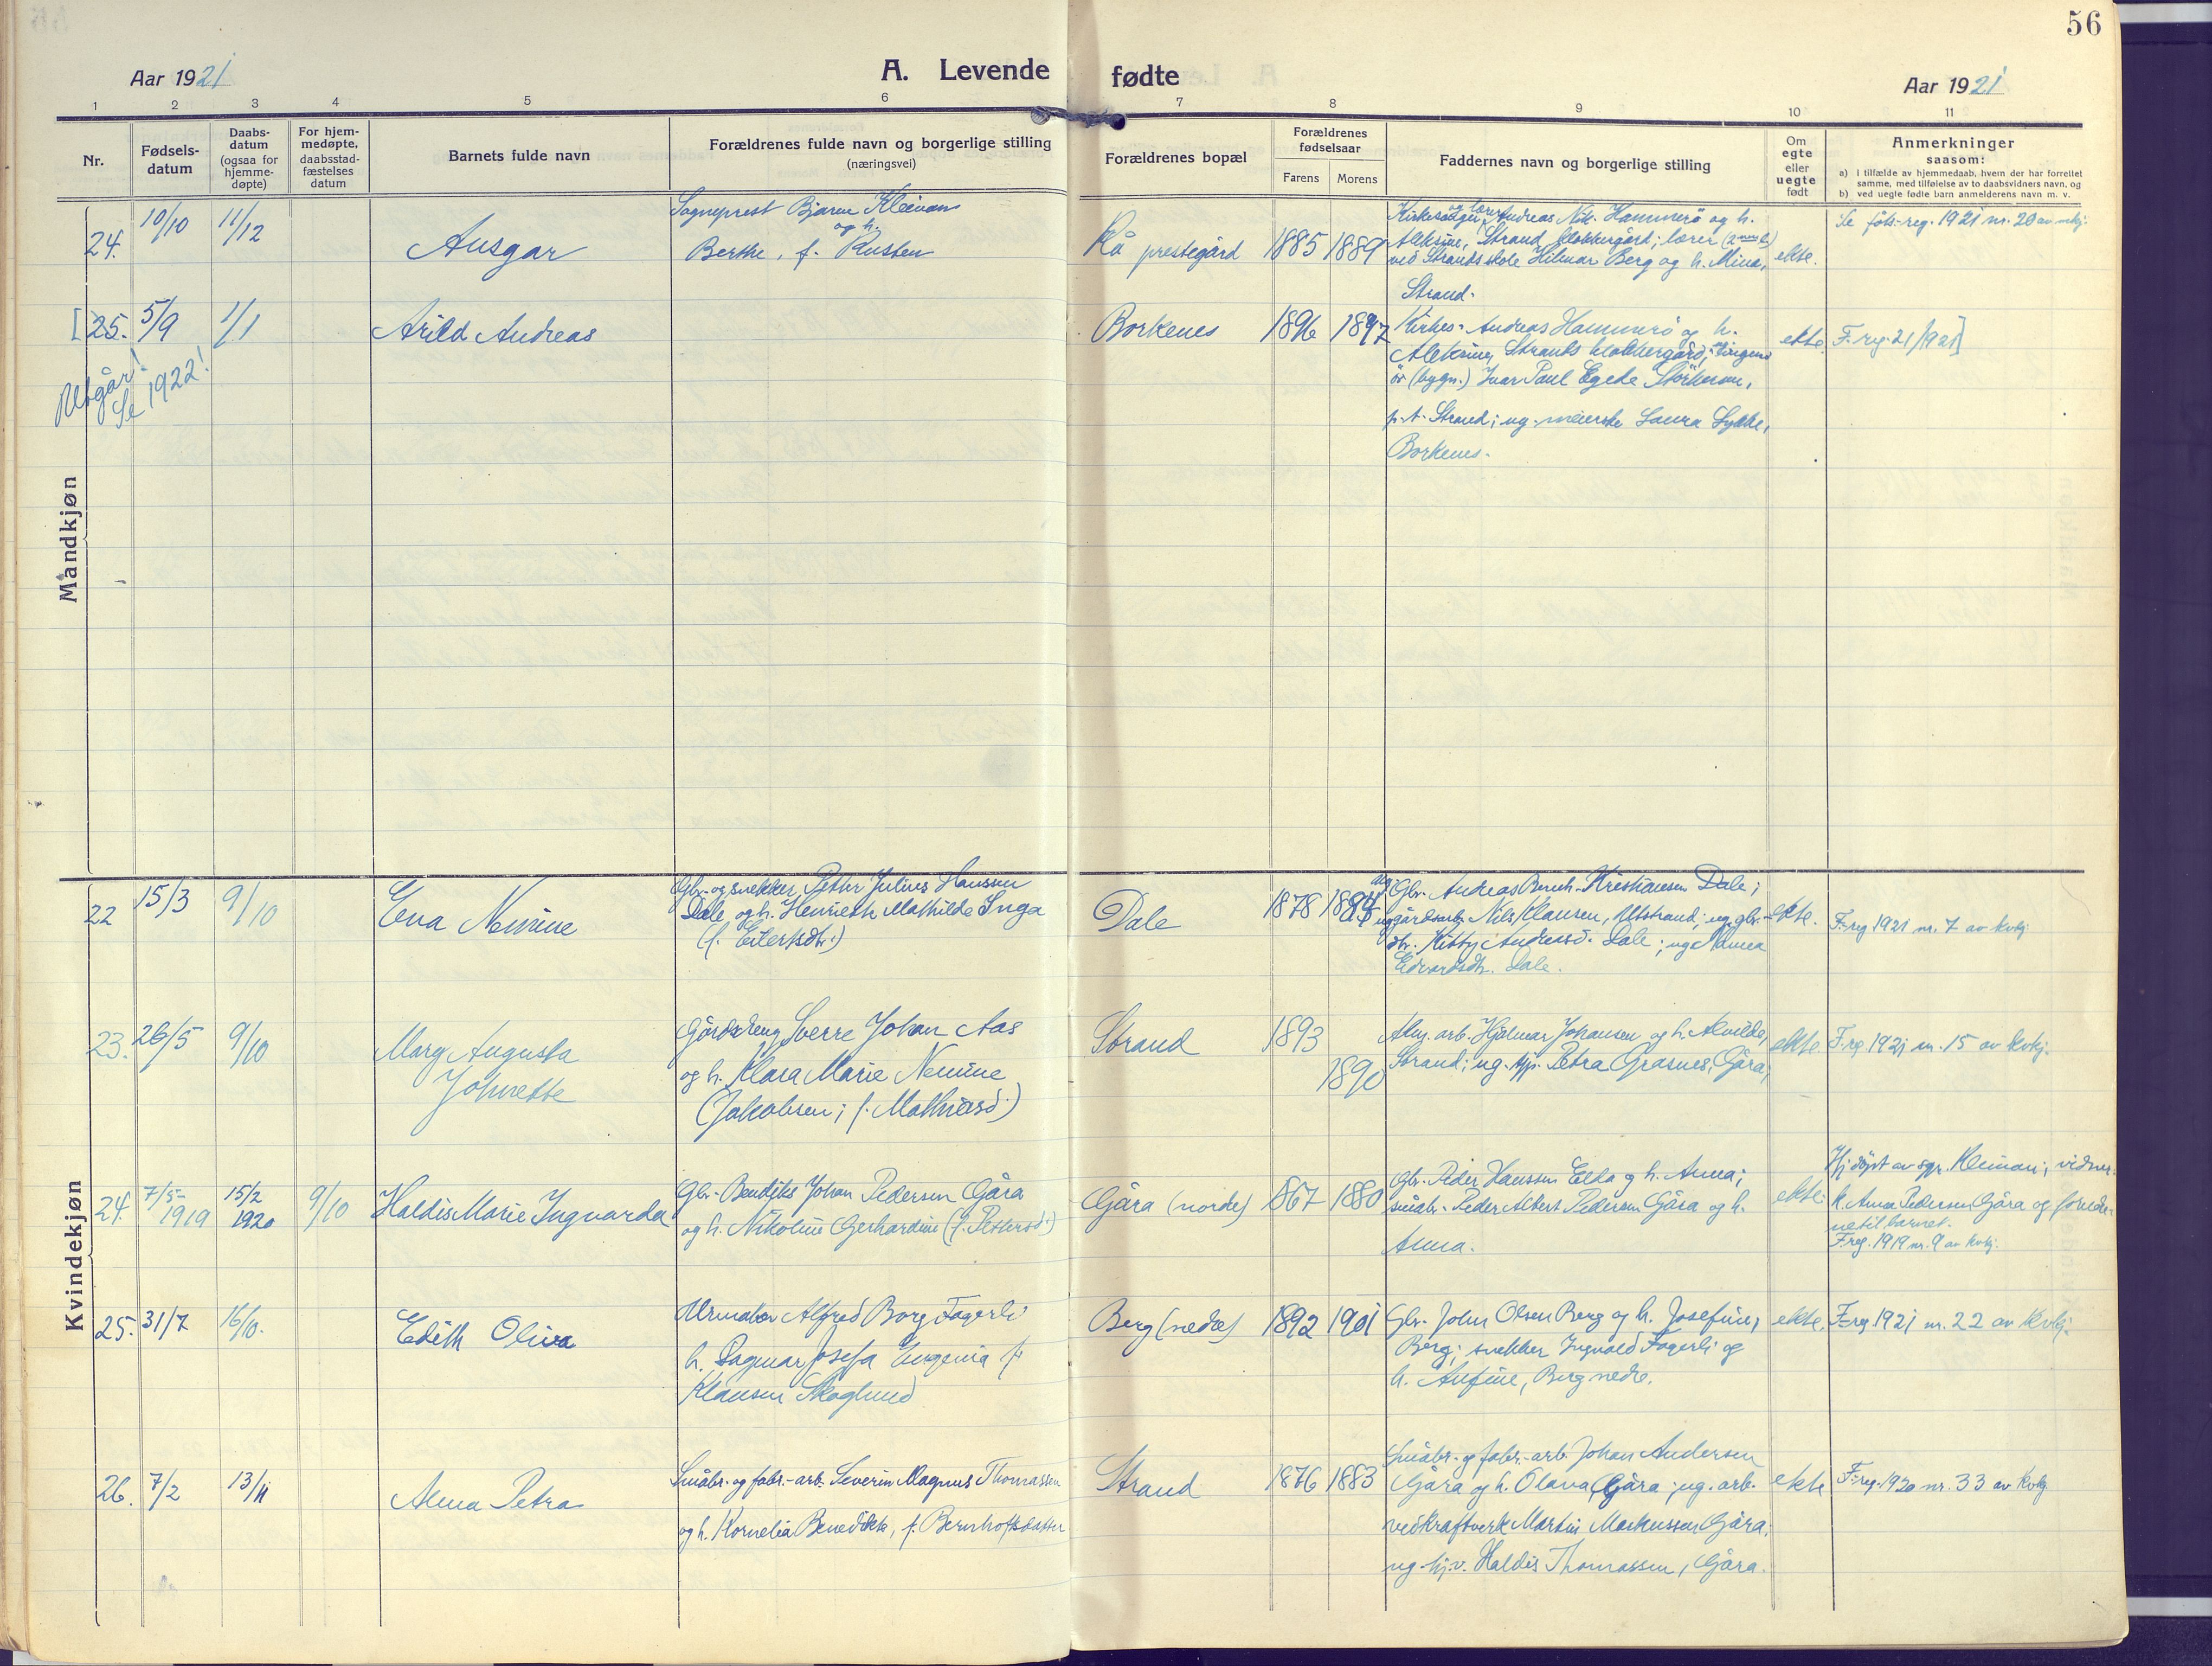 56
Aar 1921
A. Levende fødte
Aar 1921
1 2 3 4 5 6 7 8 9 10 11
Nr.
Fødsels-
datum
Daabs-
datum
(ogsaa for
hjemme-
døpte)
For hjem-
medøpte,
daabsstad-
fæstelses
datum
Barnets fulde navn
Forældrenes fulde navn og borgerlige stilling
(næringsvei)
Forældrenes bopæl
Forældrenes
fødselsaar
Farens Morens
Faddernes navn og borgerlige stilling
Om
egte
eller
uegte
født
Anmerkninger
saasom:
a) i tilfælde av hjemmedaab, hvem der har forrettet
samme, med tilføielse av to daabsvidners navn, og
b) ved uegte fødte barn anmelderens navn m. v.
Mandkjøn
24.
10/10
11/12
Ansgar
Sogneprest Bjarne Kleivan
og h.
Berthe, f. Rusten
Rå prestegård
1885 1889
Kirkesanger og lærer Andreas Nik. Hammerö og h.
Aleksine, Strand klokkergård; lærer
ved Strands skole Hilmar Berg og h. Mina,
Strand.
ekte.
Se föds.-reg. 1921 nr. 20 av mkj.
[25.
5/9
1/1
Arild Andreas
Borkenes
1896 1897
Kirkes. Andreas Hammerö og h.
Aleksine, Strands klokkergård;
(bygn.) Ivar Paul Egede Störkersen,
p.t. Strand; ug. meierske Laura Lykke,
Borkenes.
ekte.
F.reg. 21/1921]
Utgår!
Se 1922!
Kvindekjøn
22
15/3
9/10
Eva Nemine
Gbr. og snekker Petter Julius Hanssen
Dale, og h. Henriette Mathilde Inga
(f. Eilertsdtr.)
Dale
1878
Gbr. Andreas Kristiansen Dale;
ug gårdsarb. Nils Klausen, Utstrand; ug. gbr.-
dtr. Kitty Andreasd. Dale; ug
Edvardsdtr. Dale.
ekte.
F.reg 1921 nr. 7 av kvkj.
23.
26/5
9/10
Mary Augusta
Johnette
Gårdsdreng Sverre Johan Aas
og h. Klara Marie Nemine
(Jakobsen; f. Mathiasd.)
Strand
1893
1890
arb. Hjalmar Johansen og h. Alvilde,
Strand; ug. Petra Grasnes, Gåra,
ekte
F.reg. 1921 nr. 15 av kvkj.
24.
7/5-
1919
15/2
1920
9/10
Haldis Marie Ingvarda
Gbr. Bendiks Johan Pedersen Gåra
og h. Nikoline Gerhardine (f. Pettersd.)
Gåra (nordre)
1867 1880
Gbr. Peder Hanssen Elda og h. Anna;
småbr. Peder Albert Pedersen Gåra og h.
Anna.
ekte.
Hj.döpt av sgpr. Kleivan; vidner:
k. Anna Pedersen Gåra og foreldre-
ne til barnet.
F.reg. 1919 nr. 9 av kvkj.
25.
31/7
16/10.
Edith Oliva
Urmaker Alfred Borg Fagerli
h. Dagmar Josefa Eugenia f.
Klausen Skoglund
Berg (nedre)
1892 1901
Gbr. John Olsen Berg og h. Josefine,
Berg; snekker Ingvald Fagerli og
h. Anfine, Berg nedre.
ekte.
F.reg 1921 nr. 22 av kvkj.
26.
7/2
13/11
Alma Petra
Småbr. og fabr.-arb. Severin Magnus Thomassen
og h. Kornelia Benedikte, f. Bernhoftsdatter
Strand
1876 1883
Småbr. og fabr.-arb. Johan Andersen
Gåra og h. Olava, Gåra; ug. arb.
ved kraftverk Martin Markussen Gåra;
ug. hj.v. Haldis Thomassen, Gåra.
ekte
F.reg. 1920 nr. 33 av kvkj.